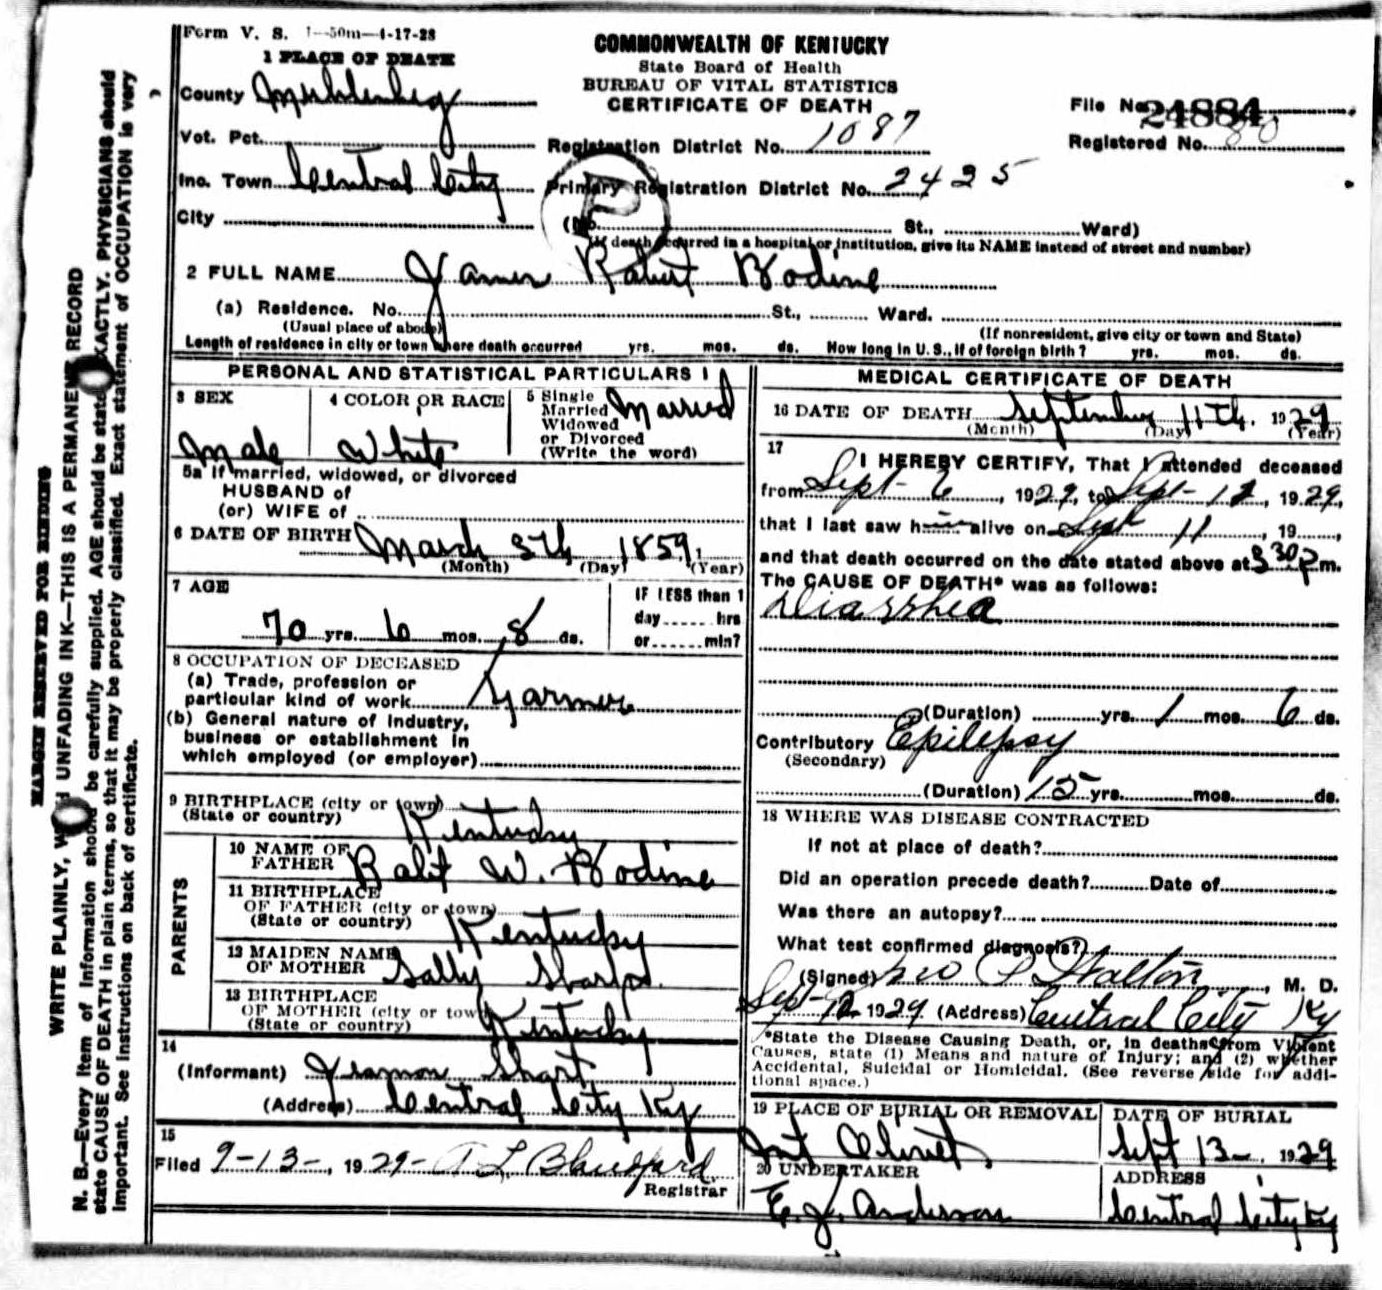 Form V. S. 1—50m—4-17-28
COMMONWEALTH OF KENTUCKY
State Board of Health
BUREAU OF VITAL STATISTICS
CERTIFICATE OF DEATH
1 PLACE OF DEATH
County Muhlenberg
Vot. Pct.
Inc. Town Central City
City
File No. 24884
Registered No. 80
Registration District No. 1087
Primary Registration District No. 2425
(No. St., Ward)
(If death occurred in a hospital or institution, give its NAME instead of street and number)
2 FULL NAME James Robert Bodine
(a) Residence. No. St., Ward.
(Usual place of abode) (If nonresident, give city or town and State)
Length of residence in city or town where death occurred yrs. mos. ds. How long in U. S., if of foreign birth? yrs. mos. ds.
PERSONAL AND STATISTICAL PARTICULARS
3 SEX Male
4 COLOR OR RACE White
5 Single Married Widowed or Divorced (Write the word) Married
5a If married, widowed, or divorced
HUSBAND of
(or) WIFE of
6 DATE OF BIRTH March 3th 1859
(Month) (Day) (Year)
7 AGE
70 yrs. 6 mos. 8 ds.
IF LESS than 1
day hrs
or min?
8 OCCUPATION OF DECEASED
(a) Trade, profession or
particular kind of work Farmer
(b) General nature of Industry,
business or establishment in
which employed (or employer)
9 BIRTHPLACE (city or town)
(State or country) Kentucky
PARENTS
10 NAME OF FATHER Robt W. Bodine
11 BIRTHPLACE
OF FATHER (city or town)
(State or country) Kentucky
12 MAIDEN NAME
OF MOTHER Sally
13 BIRTHPLACE
OF MOTHER (city or town)
(State or country) Kentucky
14
(Informant) Short
(Address) Central City Ky
15
Filed 9-13-, 1929-
Registrar
MEDICAL CERTIFICATE OF DEATH
16 DATE OF DEATH September 11th. 1929
(Month) (Day) (Year)
17
I HEREBY CERTIFY, That I attended deceased
from Sept- 6, 1929, to Sept- 12, 1929,
that I last saw him alive on Sept 11, 19,
and that death occurred on the date stated above at 330 p m.
The CAUSE OF DEATH* was as follows:
Diarrhea
(Duration) yrs. 1 mos. 6 ds.
Contributory Epilepsy
(Secondary)
(Duration) 15 yrs. mos. ds.
18 WHERE WAS DISEASE CONTRACTED
If not at place of death?
Did an operation precede death? Date of
Was there an autopsy?
What test confirmed diagnosis?
(Signed) Geo P Walton, M. D.
Sept-12 1929 (Address) Central City Ky
*State the Disease Causing Death, or, in deaths from Violent
Causes, state (1) Means and nature of Injury; and (2) whether
Accidental, Suicidal or Homicidal. (See reverse side for addi-
tional space.)
19 PLACE OF BURIAL OR REMOVAL
Mt Olivet
DATE OF BURIAL
Sept 13-, 1929
20 UNDERTAKER
E. J. Anderson
ADDRESS
Central City Ky
MARGIN RESERVED FOR BINDING
WRITE PLAINLY, WITH UNFADING INK—THIS IS A PERMANENT RECORD
N. B.—Every item of information should be carefully supplied. AGE should be stated EXACTLY. PHYSICIANS should
state CAUSE OF DEATH in plain terms, so that it may be properly classified. Exact statement of OCCUPATION is very
important. See instructions on back of certificate.